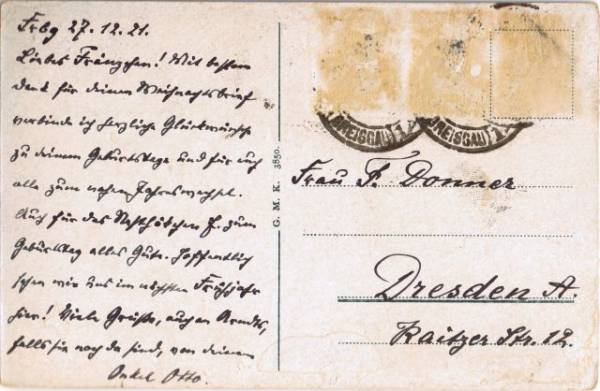 Frbg 27.12.21.
Liebes Fränzchen! Mit bestem
Dank für deinen Weihnachtsbrief
verbinde ich herzliche Glückwünsche
zu deinem Geburtstage und für euch
alle zum nahen Jahreswechsel.
Auch für das Nesthäkchen F. zum
Geburtstag alles Gute. Hoffentlich
sehen wir uns im nächsten Frühjahr
hier! Viele Grüße, auch an Arndts,
falls sie noch da sind, von deinem
Onkel Otto.
G. M. K. 3850.
(BREISGAU) 1
(BREISGAU) 1
Frau F. Donner
Dresden A.
Kaitzer Str. 12.